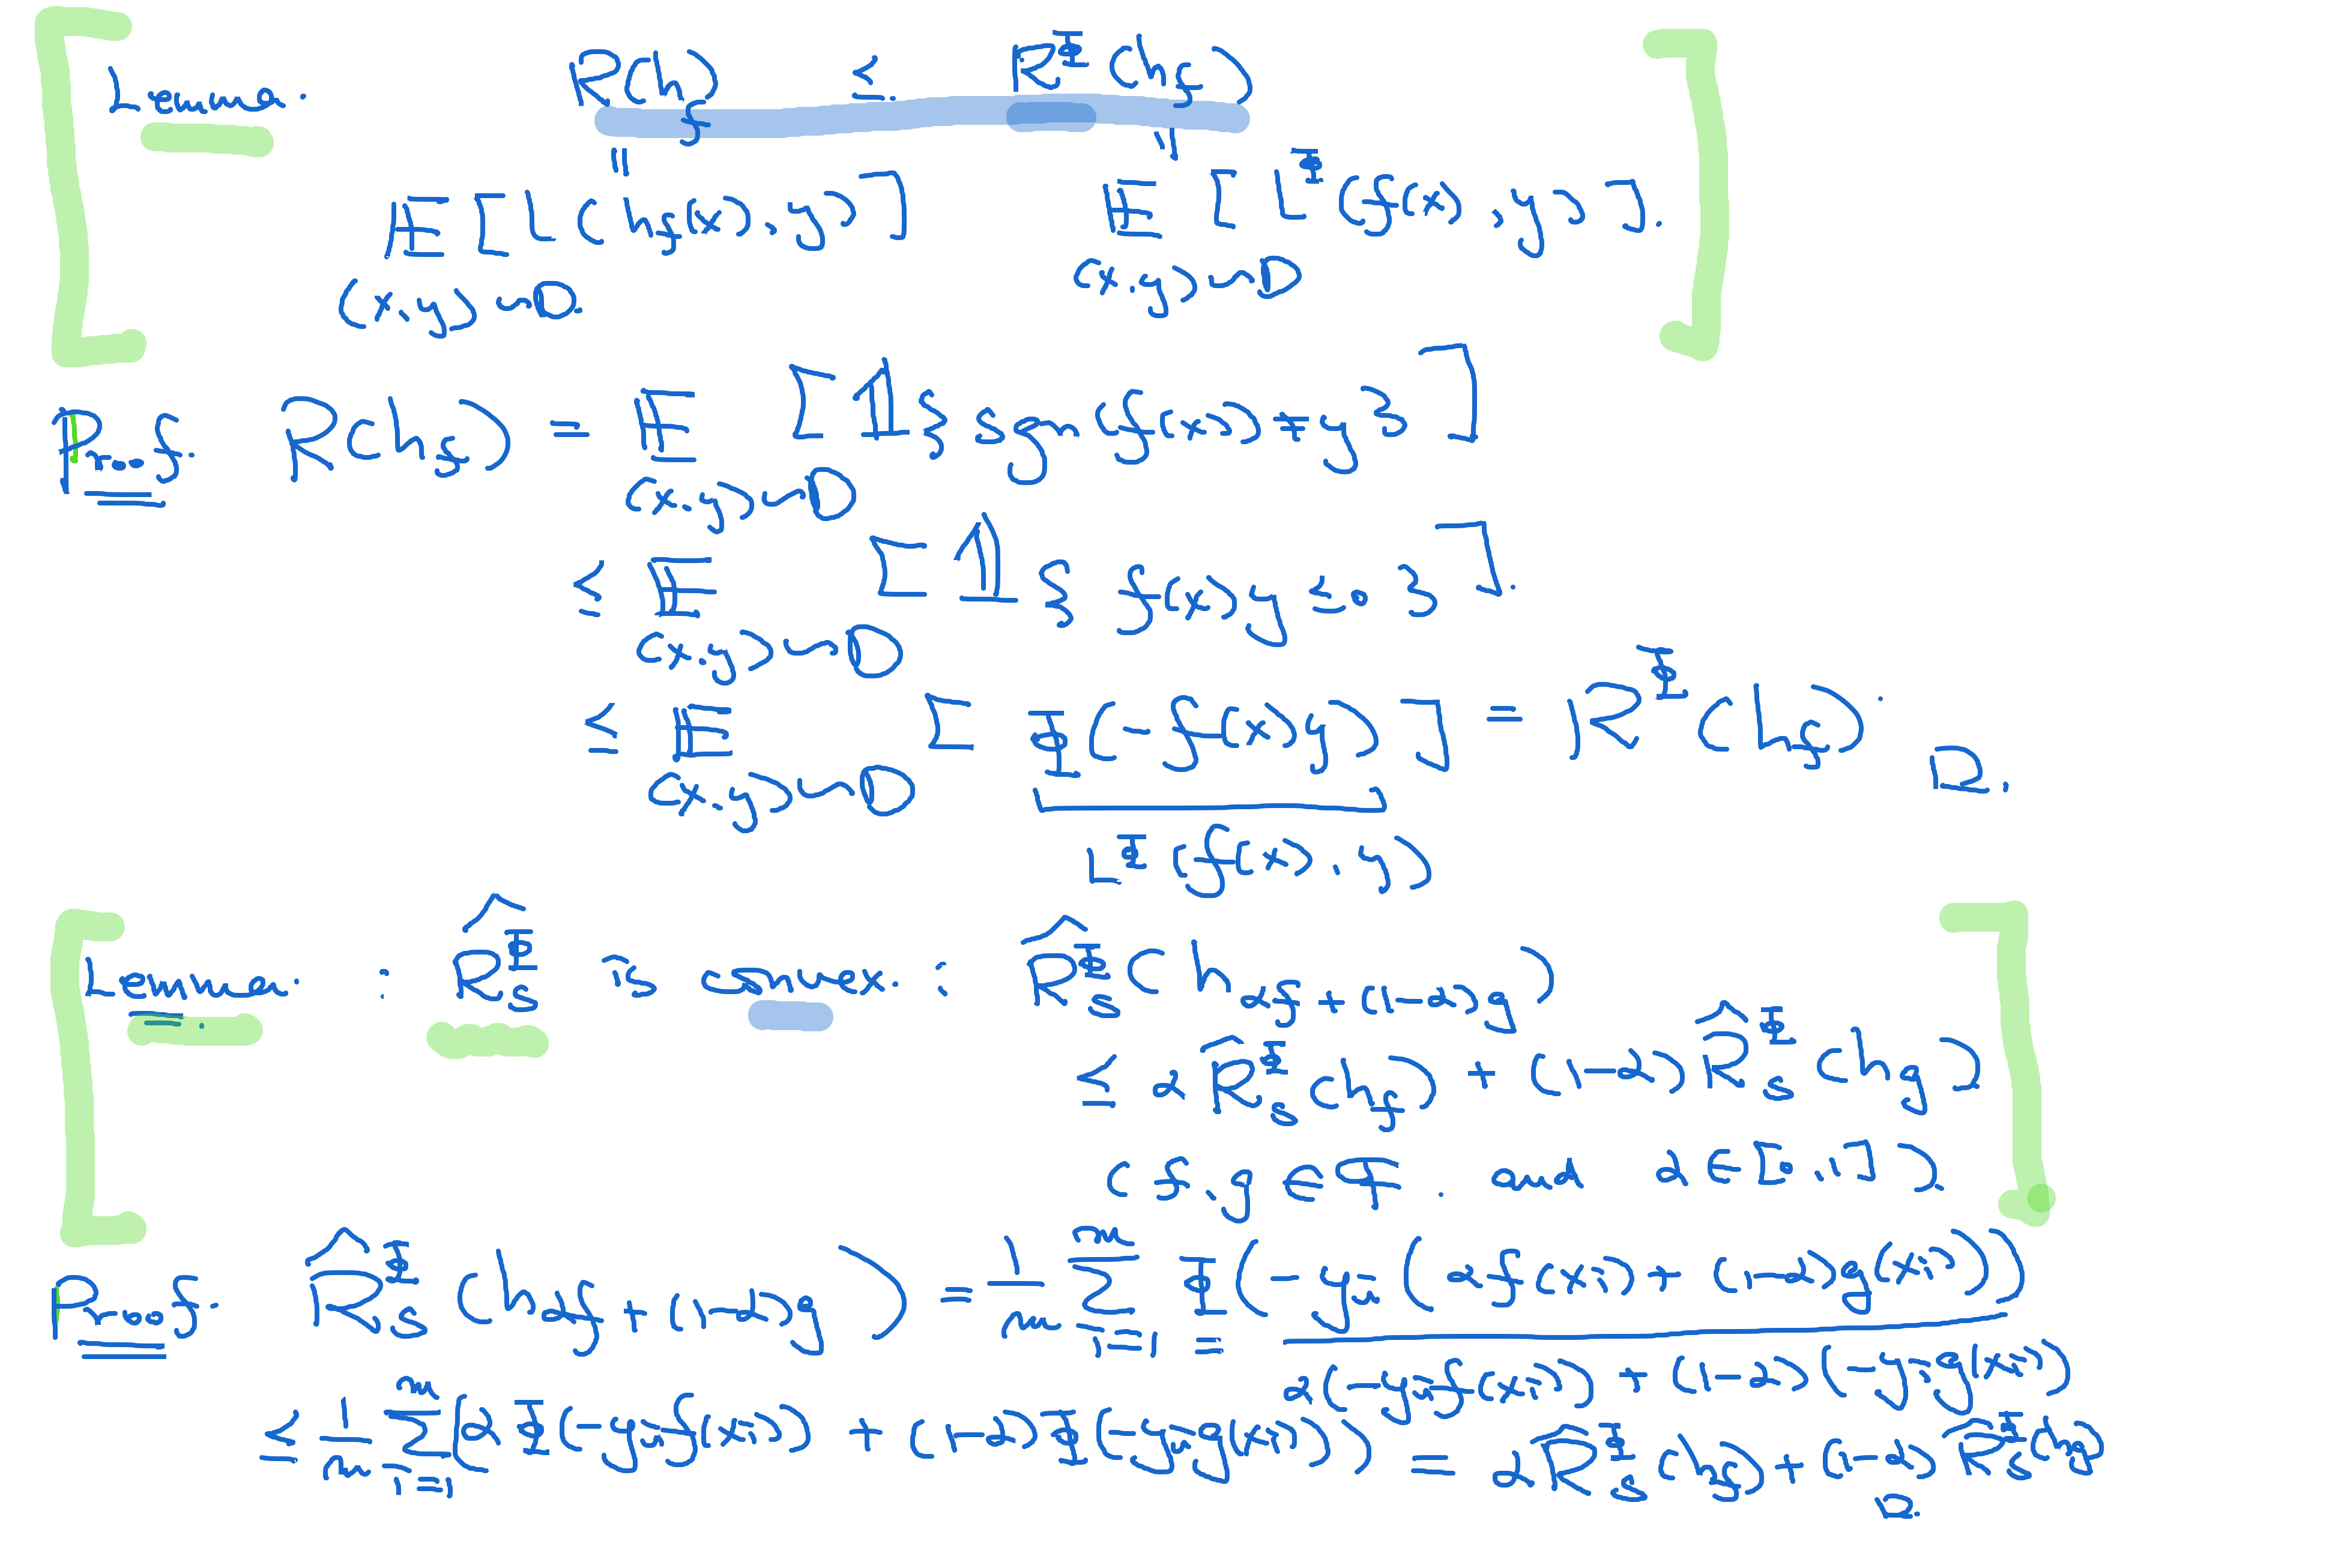 Lemma. R(h_f) ≤ R^Φ(h_f)
" "
E [L(h_f(x), y)] E [L^Φ(f(x), y)].
(x,y)~D. (x,y)~D
Proof. R(h_f) = E [1{sgn(f(x)) ≠ y}]
(x,y)~D
≤ E [1{f(x)y ≤ 0}].
(x,y)~D
≤ E [Φ(-f(x)y)] = R^Φ(h_f).
(x,y)~D
L^Φ(f(x), y)
Lemma. : R̂_S^Φ is convex. : R̂_S^Φ(h_{αf+(1-α)g})
≤ αR̂_S^Φ(h_f) + (1-α)R̂_S^Φ(h_g)
(f, g ∈ F. and α ∈ [0,1])
Proof. R̂_S^Φ(h_{αf+(1-α)g}) = 1/m Σ_{i=1}^m Φ(-y_i(αf(x_i) + (1-α)g(x_i)))
α(-y_i f(x_i)) + (1-α)(-y_i g(x_i))
≤ 1/m Σ_{i=1}^m (αΦ(-y_i f(x_i)) + (1-α)Φ(-y_i g(x_i))) = αR̂_S^Φ(h_f) + (1-α)R̂_S^Φ(h_g)